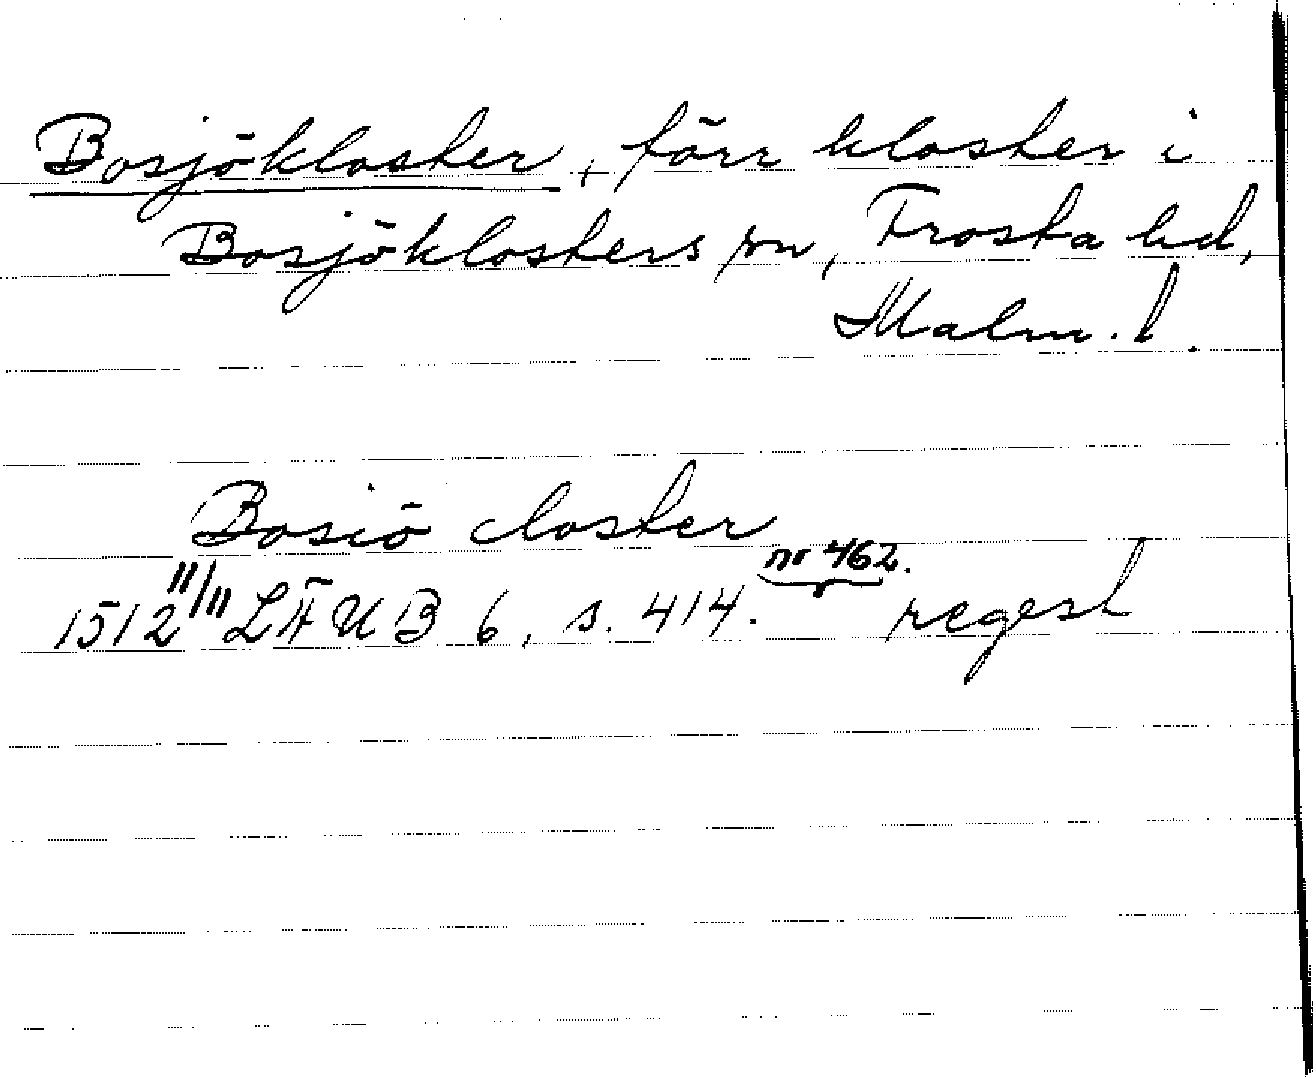 Bosjökloster, förr kloster i
Bosjöklosters sn, Frosta hd,
Malm. l.
Bosiö closter
nr 462.
1512 11/11 LÄUB 6, s. 414. regest